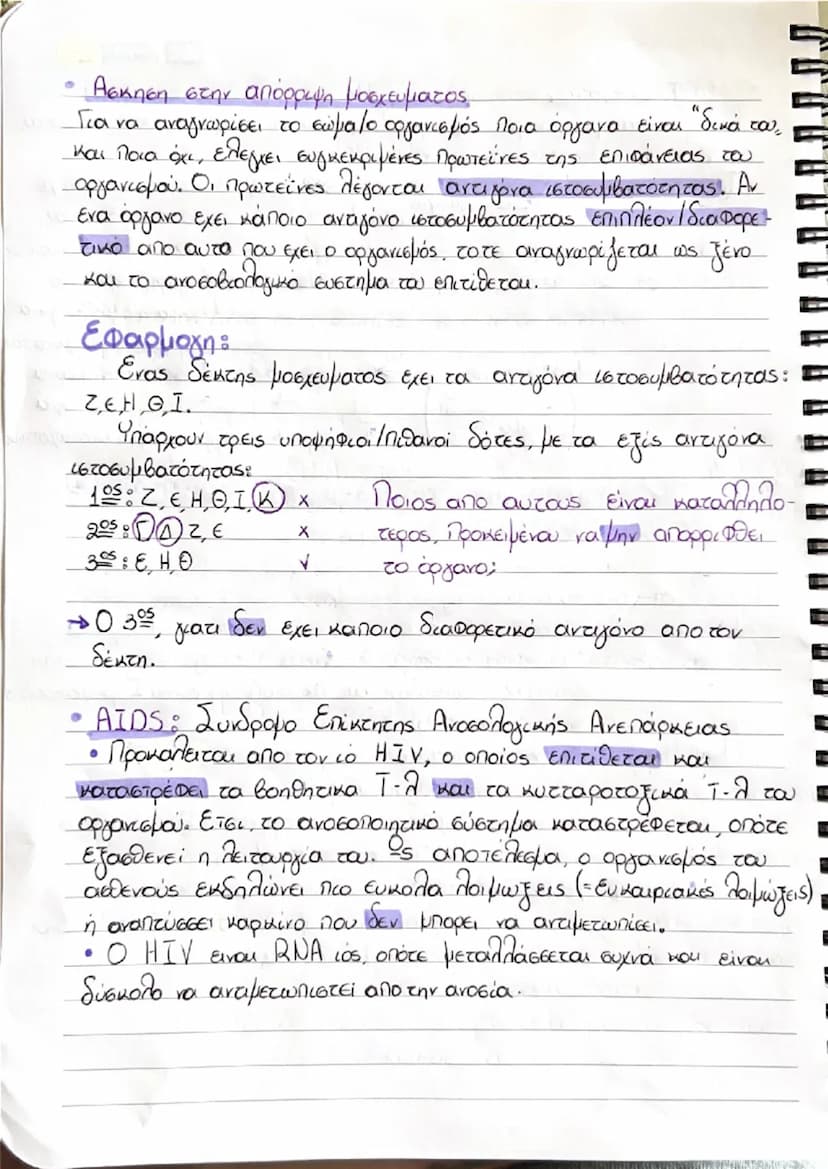 • Ασκηση στην απόρριψη μοσχευματος
Για να αναγνωρίσει το σώμα/ο οργανισμός ποια όργανα είναι "δικά του"
και ποια όχι, ελεγχει συγκεκριμένες πρωτεΐνες της επιφάνειας του
οργανισμού. Οι πρωτεΐνες λέγονται αντιγόνα ιστοσυμβατότητας. Αν
ενα όργανο εχει κάποιο αντιγόνο ιστοσυμβατότητας επιπλέον/διαφορε-
τικό απο αυτο που έχει ο οργανισμός, τοτε αναγνωρίζεται ως ξένο
και το ανοσοβιολογικό συστημα του επιτίθεται.
Εφαρμογη:
Ενας δέκτης μοσχευματος εχει τα αντιγόνα ιστοσυμβατότητας:
Ζ, Ε, Η, Θ, Ι.
Υπάρχουν τρεις υποψήφιοι/πιθανοί δότες, με τα εξής αντιγόνα
ιστοσυμβατότητας:
1ος: Ζ, Ε, Η, Θ, Ι, Κ x Ποιος απο αυτους είναι καταλληλο-
2ος: Γ, Δ, Ζ, Ε x τερος, προκειμένου να μην απορριφθει
3ος: Ε, Η, Θ √ το όργανο;
→ Ο 3ος, γιατι δεν εχει καποιο διαφορετικό αντιγόνο απο τον
δέκτη.
• AIDS: Συνδρομο Επίκτητης Ανοσολογικής Ανεπάρκειας
• Προκαλειται απο τον ιό HIV, ο οποίος επιτίθεται και
καταστρέφει τα βοηθητικα Τ-λ και τα κυτταροτοξικά Τ-λ του
οργανισμού. Ετσι, το ανοσοποιητικό σύστημα καταστρέφεται, οπότε
εξασθενεί η λειτουργία του. Ως αποτέλεσμα, ο οργανισμός του
ασθενούς εκδηλώνει πιο ευκολα λοιμωξεις (=ευκαιριακές λοιμώξεις)
ή αναπτύσσει καρκίνο που δεν μπορει να αντιμετωπίσει.
• Ο HIV ειναι RNA ιός, οπότε μεταλλάσσεται συχνά και είναι
δύσκολο να αντιμετωπιστεί απο την ανοσία.